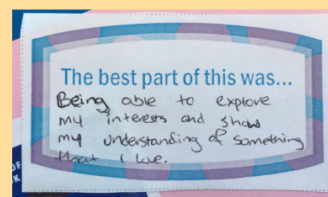 The best part of this was...
Being able to explore
my interests and show
my understanding of something
that I love.
OF
K